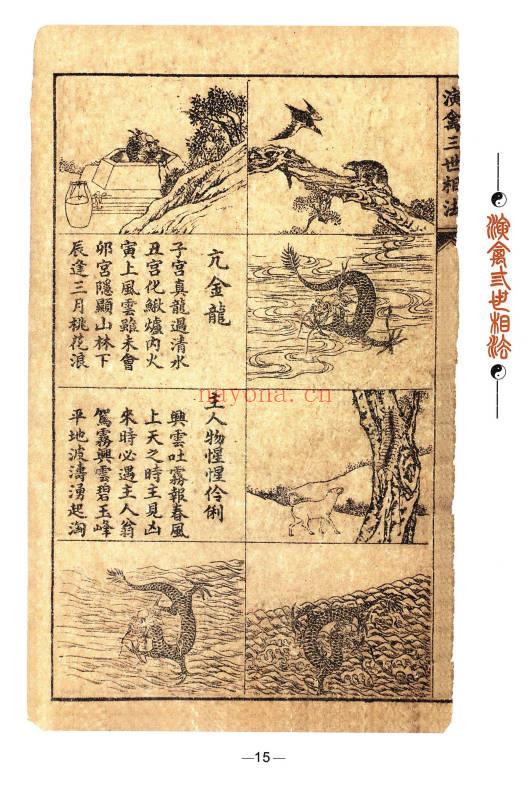 演禽弎世相法
演禽三世相法
亢金龍
子宮真龍過清水
丑宮化鰍爐內火
寅上風雲雖未會
卯宮隱顯山林下
辰逢三月桃花浪
主人物惺惺伶俐
興雲吐霧報春風
上天之時主見凶
來時必遇主人翁
駕霧興雲碧玉峰
平地波濤湧起淘
nayona.cn
—15—